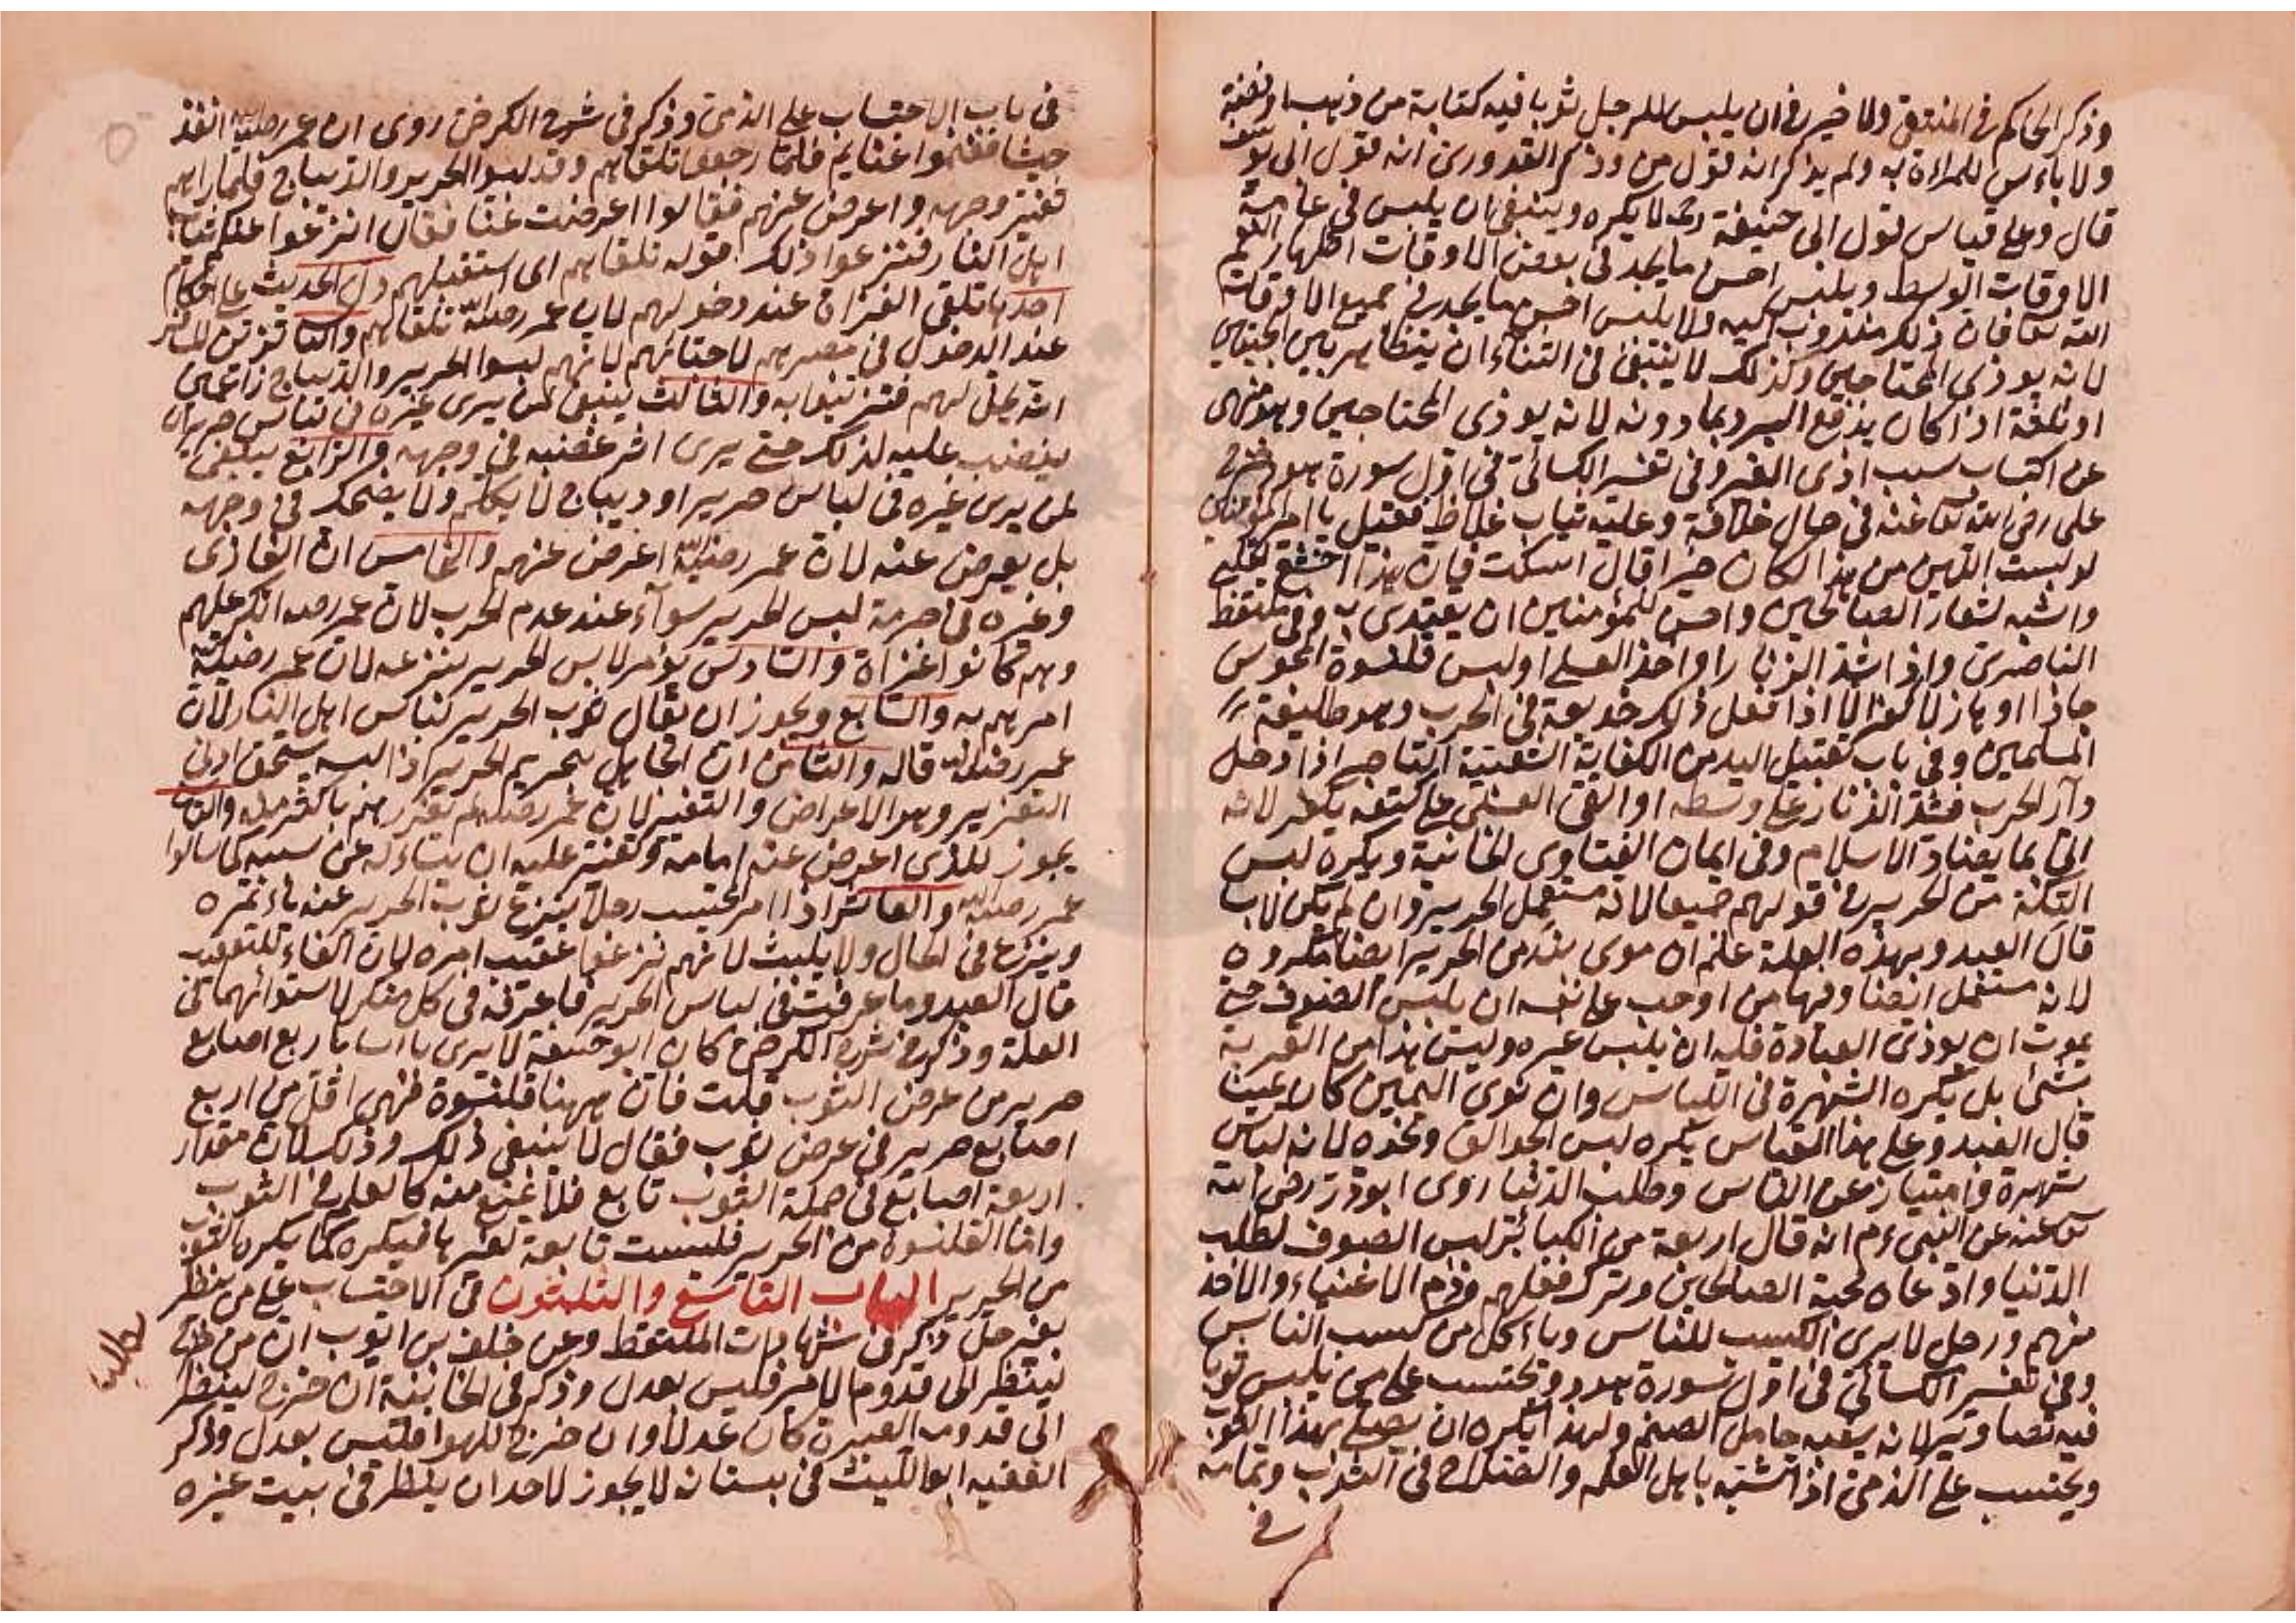 وذكر الحاكم في المنتقى ولا خير في ان يلبس للرجل ثوبا فيه كتابة من ذهب او فضة
ولا باءس للمراءة به ولم يذكر انه قول من وذكر القدورى انه قول ابى يوسف
قال وعلى قياس قول ابى حنيفة رح لا يكره وينبغى ان يلبس في عامة
الاوقات الوسط ويلبس احسن ما يجد في بعض الاوقات اظهار النعم
الله تعا فان ذلك مندوب اليه ولا يلبس احسن ما يجد في جميع الاوقات
لانه يوذى المحتاجين وكذلك لا ينبغى في الشتاء ان يتظاهر بين الجبتين
او ثلثة اذا كان يدفع البرد بما دونه لانه يوذى المحتاجين وهو منهى
عن اكتساب سبب اذى الغير وفى تفسير الكسائى في اول سورة هود خرج
على رضى الله تعا عنه في حال خلافة وعليه ثياب غلاظ فقيل يا امير المؤمنين
لو لبست الين من هذا لكان خيرا قال اسكت فان هذا اخشع للقلب
واشبه لشعار الصالحين واحسن للمؤمنين ان يقتدى به وفى ملتقط
الناصرى واذا شد الزنار او اخذ العسلى او لبس قلنسوة المجوس
جادا او هازلا كفر الا اذا فعل ذلك خديعة في الحرب وهو طليعة
المسلمين وفى باب تقبيل اليد من الكفاية الشعبية التاجر اذا دخل
دار الحرب فشد الزنار على وسطه او القى العسلى على كتفه يكفر لانه
اتى بما يضاد الاسلام وفى ايمان الفتاوى الخانية ويكره لبس
التكة من الحرير في قولهم جميعا لانه مستعمل الحرير وان لم يكن لابسا
قال العبد وبهذه العلة علم ان موى بند من الحرير ايضا مكروه
لانه مستعمل ايضا وفيها من اوجب على نفسه ان يلبس الصوف حتى
يموت ان يوذى العبادة فله ان يلبس غيره وليس هذا من القربة
بشئ بل يكره الشهرة في اللباس وان نوى اليمين كان يمينا
قال العبد وعلى هذا القياس يكره لبس الجوالق ونحوه لانه لباس
شهرة وامتياز عن الناس وطلب الدنيا روى ابوذر رضى الله
تعا عنه عن النبي ءم انه قال اربعة من الكبائر لبس الصوف لطلب
الدنيا وادعاه محبة الصالحين وترك فعلهم وذم الاغنياء والاخذ
منهم ورجل لا يرى الكسب للناس وياءكل من كسب الناس
وفى تفسير الكسائى في اول سورة هود ويحتسب على من يلبس ثوبا
فيه تصاوير لانه يشبه حامل الصنم ولهذا يكره ان يصلى بهذا الثوب
ويحتسب على الذمى اذا تشبه باهل العلم والصلاح في الثوب وتمامه
في
في باب الاحتساب على الذمى وذكر في شرح الكرخى روى ان عمر رضى الله انفذ
جيشا فغنموا غنايم فلما رجعوا تلقاهم وقد لبسوا الحرير والديباج فلما راهم
تغير وجهه واعرض عنهم فقالوا اعرضت عنا فقال انزعوا عنكم ثياب
اهل النار فنزعوا ذلك قوله تلقاهم اى استقبلهم دل الحديث على احكام
احدها تلقى الغزاة عند دخولهم لان عمر رضى الله تلقاهم والثانى تزين للناس
عند الدخول في مصرهم لاحبائهم لانهم لبسوا الحرير والديباج زاعمين
انه يحل لهم فتزينوا به والثالث ينبغى لمن يرى غيره في لباس حرير ان
يغضب عليه لذلك حتى يرى اثر غضبه في وجهه والرابع ينبغى
لمن يرى غيره في لباس حرير او ديباج لا يكلم ولا يضحك في وجهه
بل يعرض عنه لان عمر رضى الله اعرض عنهم والخامس ان الغازى
وغيره في حرمة لبس الحرير سوآء عند عدم الحرب لان عمر رضه انكر عليهم
وهم كانوا غزاة والسادس يؤمر لابس الحرير بنزعه لان عمر رضى الله
امرهم به والسابع ويجوز ان يقال ثوب الحرير لباس اهل النار لان
عمر رضى الله قاله والثامن ان الجاهل بتحريم الحرير اذا لبسه يستحق ادنى
التعزير وهو الاعراض والتغير لان عمر رضى الله لم يعزرهم باكثر منه والتاسع
يجوز للذى اعرض عنه امامه وتغير عليه ان يساءله عن سببه كما سالوا
عمر رضى الله والعاشر اذا امر المحتسب رجلا بنزع ثوب الحرير عنه ياءتمره
وينزع في الحال ولا يلبث لانهم نزعوا عقيب امره لان الفاء للتعقيب
قال العبد وما عرفت في لباس الحرير فاعرفه في كل منكر لاستوائهما في
العلة وذكر في شرح الكرخى كان ابو حنيفة لا يرى باءسا باربع اصابع
حرير من عرض الثوب قلت فان ههنا قلنسوة ظهى اقل من اربع
اصابع حرير في عرض ثوب فقال لا ينبغى ذلك وذلك لان مقدار
اربعة اصابع في جملة الثوب تابع فلا يمنع منه كالعلم في الثوب
واما القلنسوة من الحرير فليست تابعة لغيرها فيكره كما يكره الثوب
من الحرير الباب التاسع والثلثون في الاحتساب على من ينظر
بغير حل ذكر في شهادات الملتقط وعن خلف بن ايوب ان من خرج
لينظر الى قدوم الامير فليس بعدل وذكر في الخانية ان خرج لينظر
الى قدوم العبرة كان عدلا وان خرج للهو فليس بعدل وذكر
الفقيه ابوالليث في بستانه لا يجوز لاحد ان ينظر في بيت غيره